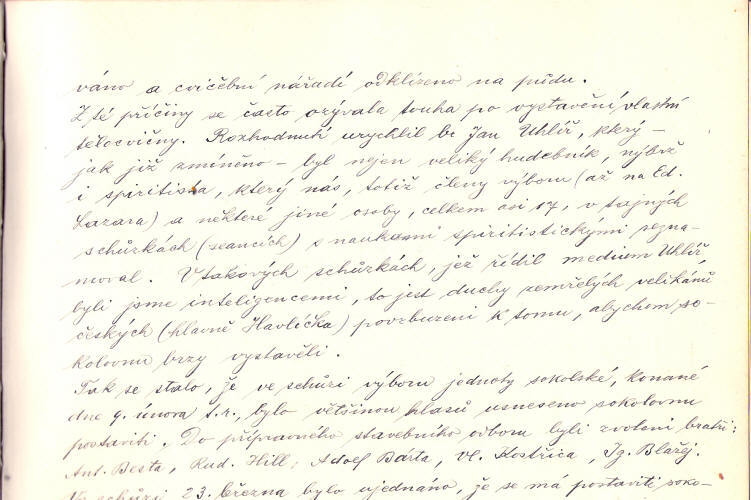 váno a cvičební nářadí odklízeno na půdu.
Z té příčiny se často ozývala touha po vystavění vlastní
tělocvičny. Rozhodnutí urychlil br Jan Uhlíř, který –
jak již zmíněno – byl nejen veliký hudebník, nýbrž
i spiritista, který nás, totiž členy výboru (až na Ed.
Lazara) a některé jiné osoby, celkem asi 17, v tajných
schůzkách (seancích) s naukami spiritistickými sezna-
moval. V takových schůzkách, jež řídil medium Uhlíř
byli jsme inteligencemi, to jest duchy zemřelých velikánů
českých (hlavně Havlíčka) povzbuzeni k tomu, abychom so-
kolovnu brzy vystavěli.
Tak se stalo, že ve schůzi výboru jednoty sokolské, konané
dne 9. února t.r., bylo většinou hlasů usneseno sokolovnu
postaviti. Do přípravného stavebního odboru byli zvoleni bratři:
Ant. Besta, Rud. Hill, Adolf Bárta, Vl. Kostřica, Ig. Blažej.
Ve schůzi 23. března bylo ujednáno, že se má postaviti soko-